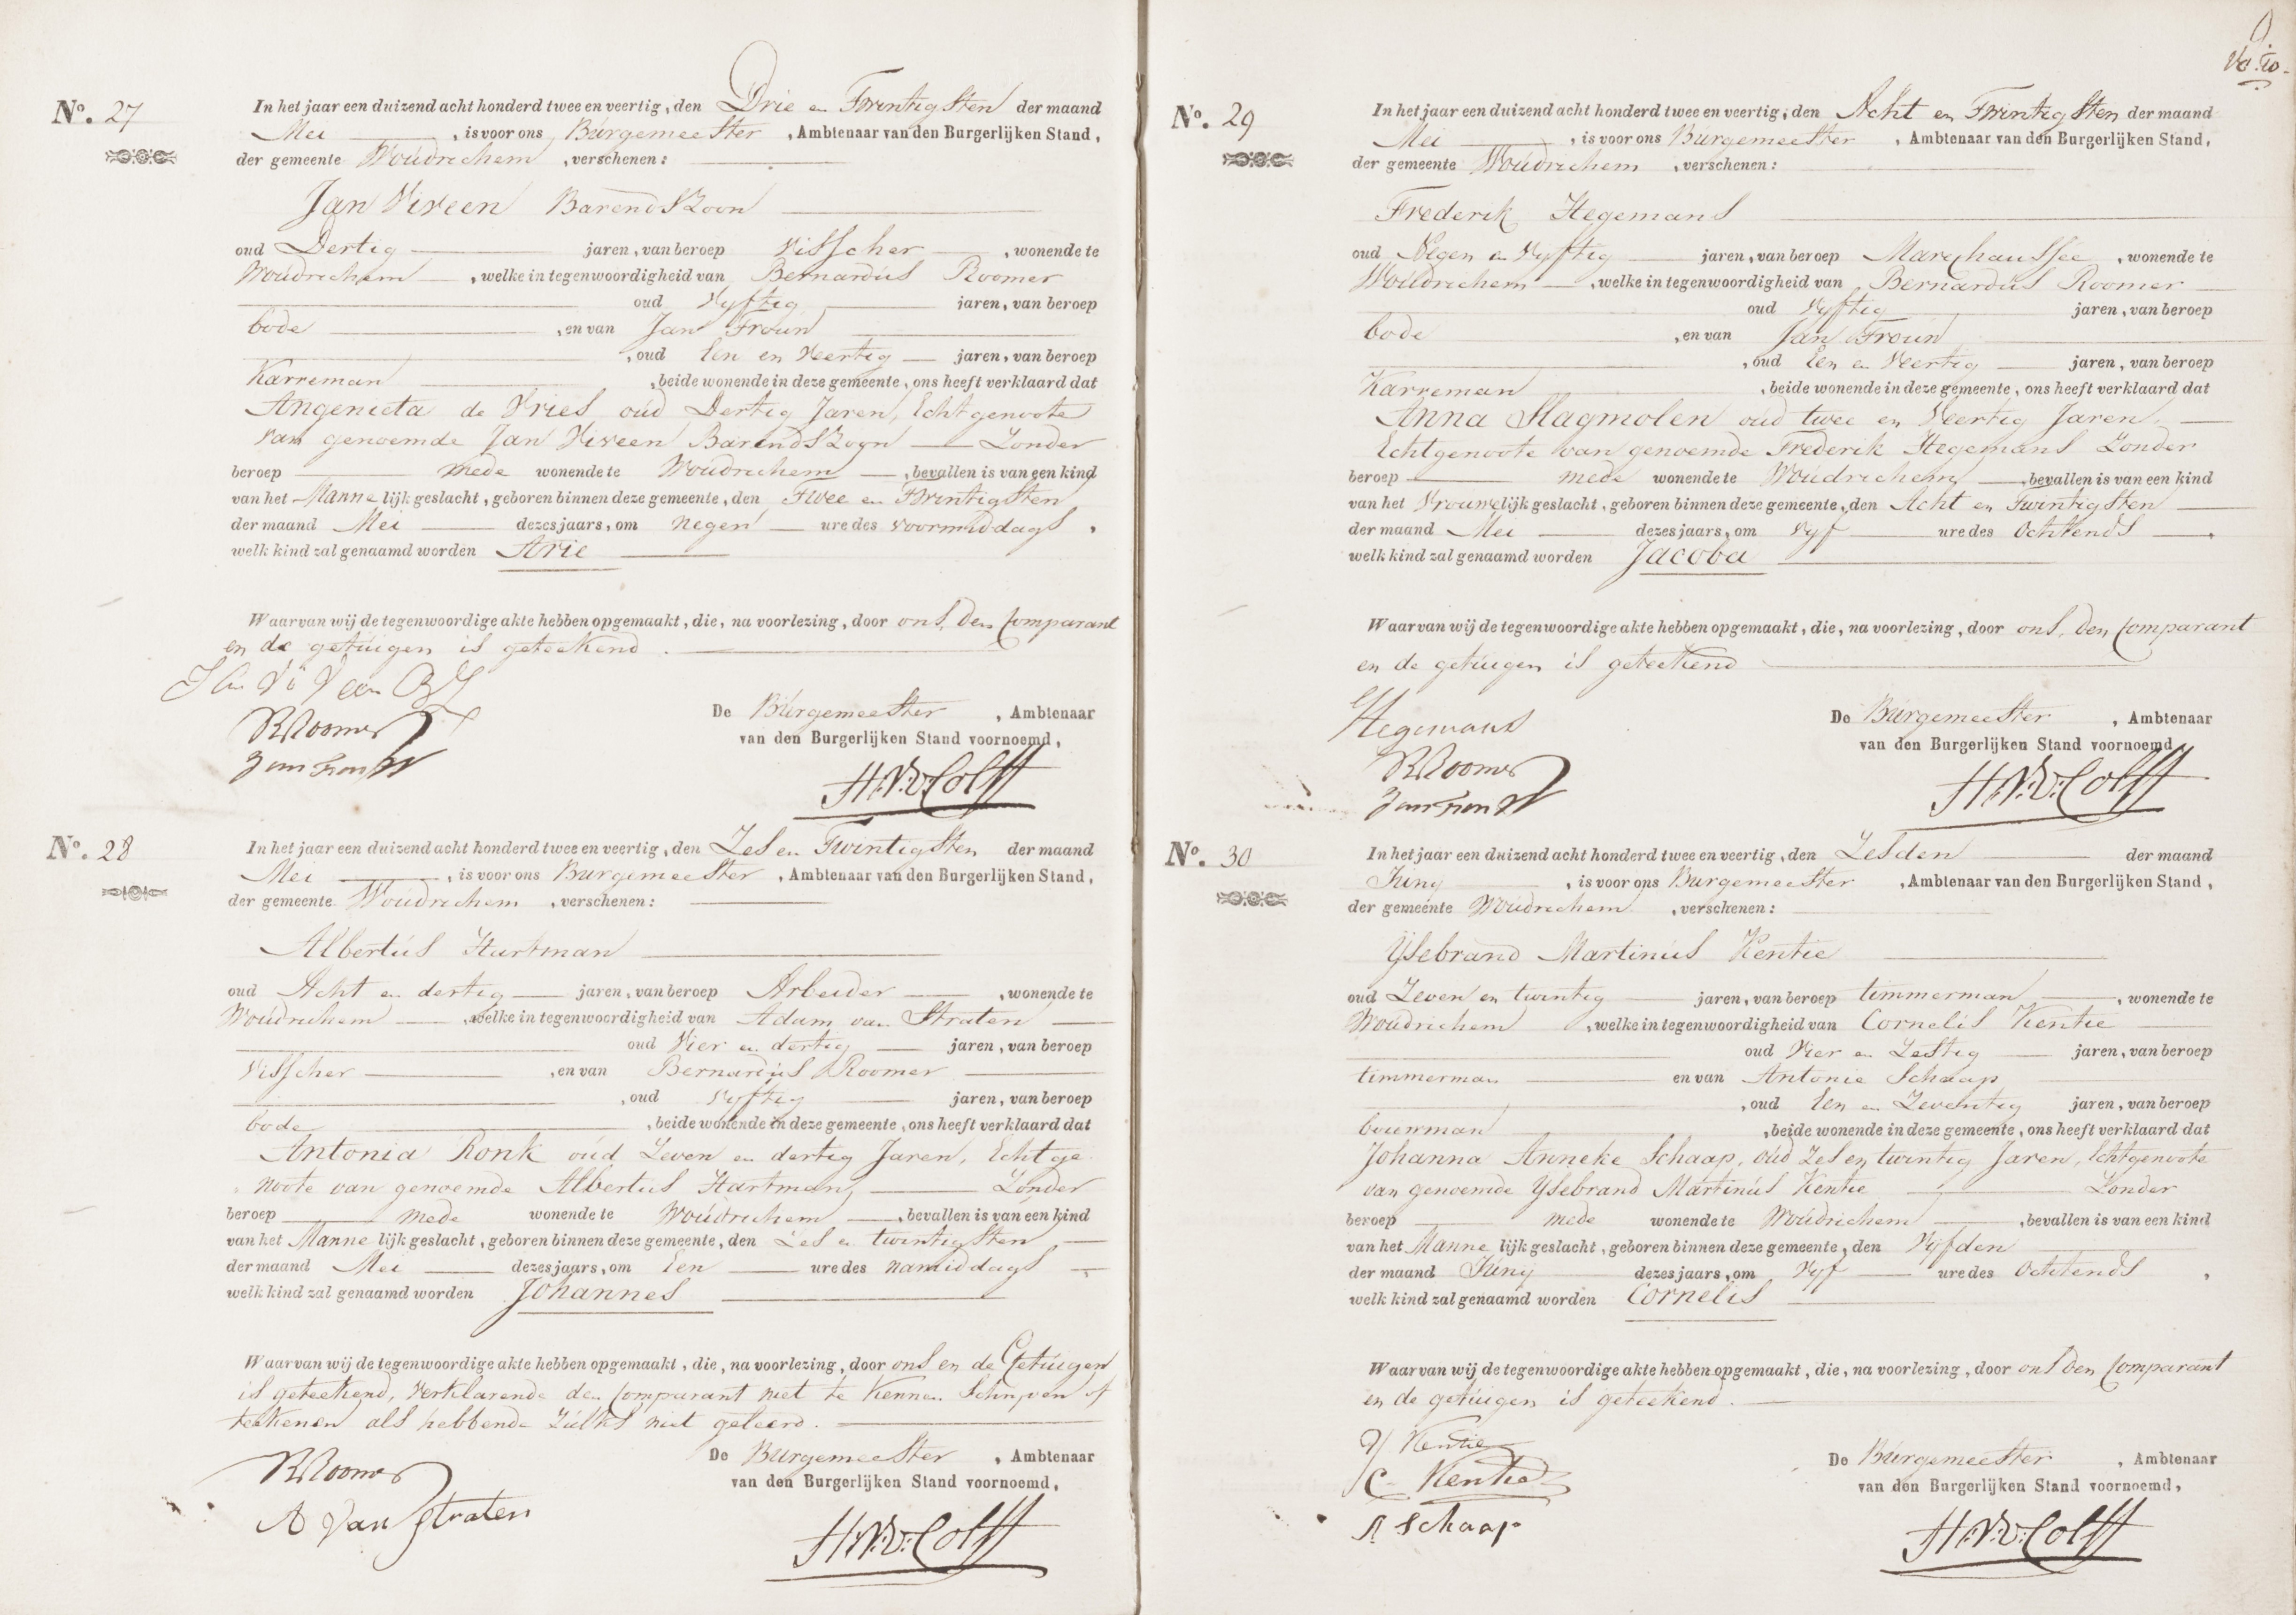 No. 27
In het jaar een duizend acht honderd twee en veertig, den Drie en Twintigsten der maand
Mei, is voor ons Burgemeester, Ambtenaar van den Burgerlijken Stand,
der gemeente Woudrichem, verschenen:
Jan Viveen Barendszoon
oud Dertig jaren, van beroep Visscher, wonende te
Woudrichem, welke in tegenwoordigheid van Bernardus Roomer
oud Vyftig jaren, van beroep
bode, en van Jan Froun
, oud Een en Veertig jaren, van beroep
Karreman, beide wonende in deze gemeente, ons heeft verklaard dat
Angenieta de Vries oud Dertig Jaren, Echtgenoote
van genoemde Jan Viveen Barendszoon Zonder
beroep mede wonende te Woudrichem, bevallen is van een kind
van het Mannelijk geslacht, geboren binnen deze gemeente, den Twee en Twintigsten
der maand Mei dezes jaars, om negen ure des voormiddags,
welk kind zal genaamd worden Arie
Waarvan wij de tegenwoordige akte hebben opgemaakt, die, na voorlezing, door ons, den Comparant
en de getuigen is geteekend.
De Burgemeester, Ambtenaar
van den Burgerlijken Stand voornoemd,
BRoomer
No. 28
In het jaar een duizend acht honderd twee en veertig, den Zes en Twintigsten der maand
Mei, is voor ons Burgemeester, Ambtenaar van den Burgerlijken Stand,
der gemeente Woudrichem, verschenen:
Albertus Hartman
oud Acht en dertig jaren, van beroep Arbeider, wonende te
Woudrichem, welke in tegenwoordigheid van Adam van Straten
oud Vier en dertig jaren, van beroep
Visscher, en van Bernardus Roomer
, oud Vyftig jaren, van beroep
bode, beide wonende in deze gemeente, ons heeft verklaard dat
Antonia Ronk oud Zeven en dertig Jaren, Echtge
noote van genoemde Albertus Hartman, Zonder
beroep mede wonende te Woudrichem, bevallen is van een kind
van het Mannelijk geslacht, geboren binnen deze gemeente, den Zes en twintigsten
der maand Mei dezes jaars, om Een ure des namiddags
welk kind zal genaamd worden Johannes
Waarvan wij de tegenwoordige akte hebben opgemaakt, die, na voorlezing, door ons en de Getuigen
is geteekend, verklarende den Comparant niet te kennen Schryven of
teekenen als hebbende Zulks niet geleerd.
De Burgemeester, Ambtenaar
van den Burgerlijken Stand voornoemd,
BRoomer
A van Straten
No. 29
In het jaar een duizend acht honderd twee en veertig, den Acht en Twintigsten der maand
Mei, is voor ons Burgemeester, Ambtenaar van den Burgerlijken Stand,
der gemeente Woudrichem, verschenen:
Frederik Hegemans
oud Negen en Vyftig jaren, van beroep Marechaussee, wonende te
Woudrichem, welke in tegenwoordigheid van Bernardus Roomer
oud Vyftig jaren, van beroep
bode, en van Jan Froun
, oud Een en Veertig jaren, van beroep
Karreman, beide wonende in deze gemeente, ons heeft verklaard dat
Anna Slagmolen oud twee en Veertig Jaren,
Echtgenoote van genoemde Frederik Hegemans Zonder
beroep mede wonende te Woudrichem, bevallen is van een kind
van het Vrouwelijk geslacht, geboren binnen deze gemeente, den Acht en Twintigsten
der maand Mei dezes jaars, om Vyf ure des Ochtends,
welk kind zal genaamd worden Jacoba
Waarvan wij de tegenwoordige akte hebben opgemaakt, die, na voorlezing, door ons, den Comparant
en de getuigen is geteekend
De Burgemeester, Ambtenaar
van den Burgerlijken Stand voornoemd,
Hegemans
BRoomer
No. 30
In het jaar een duizend acht honderd twee en veertig, den Zesden der maand
Juny, is voor ons Burgemeester, Ambtenaar van den Burgerlijken Stand,
der gemeente Woudrichem, verschenen:
Ysebrand Martinus Kentie
oud Zeven en twintig jaren, van beroep timmerman, wonende te
Woudrichem, welke in tegenwoordigheid van Cornelis Kentie
oud Vier en Zestig jaren, van beroep
timmerman en van Antonie Schaap
, oud Een en Zeventig jaren, van beroep
bouwman, beide wonende in deze gemeente, ons heeft verklaard dat
Johanna Anneke Schaap, oud Zes en twintig Jaren, Echtgenoote
van genoemde Ysebrand Martinus Kentie Zonder
beroep mede wonende te Woudrichem, bevallen is van een kind
van het Mannelijk geslacht, geboren binnen deze gemeente, den Vyfden
der maand Juny dezes jaars, om Vyf ure des Ochtends,
welk kind zal genaamd worden Cornelis
Waarvan wij de tegenwoordige akte hebben opgemaakt, die, na voorlezing, door ons den Comparant
en de getuigen is geteekend.
De Burgemeester, Ambtenaar
van den Burgerlijken Stand voornoemd,
Y Kentie
C Kentie
A Schaap